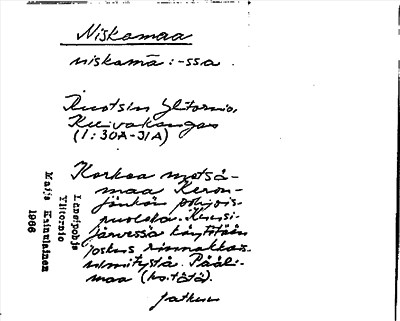 Niskamaa
niskamā : -ssa
Ruotsin Ylitornio,
Kuivakangas
(1 : 30A-31A)
Korkea metsä-
maa Keron-
jänkän pohjois-
puolella. Kuusi-
järvessä käytetään
joskus rinnakkais-
nimitystä Pääli-
maa (ks. tätä).
jatkuu
Länsipohja
Ylitornio
Maija Kainulainen
1966